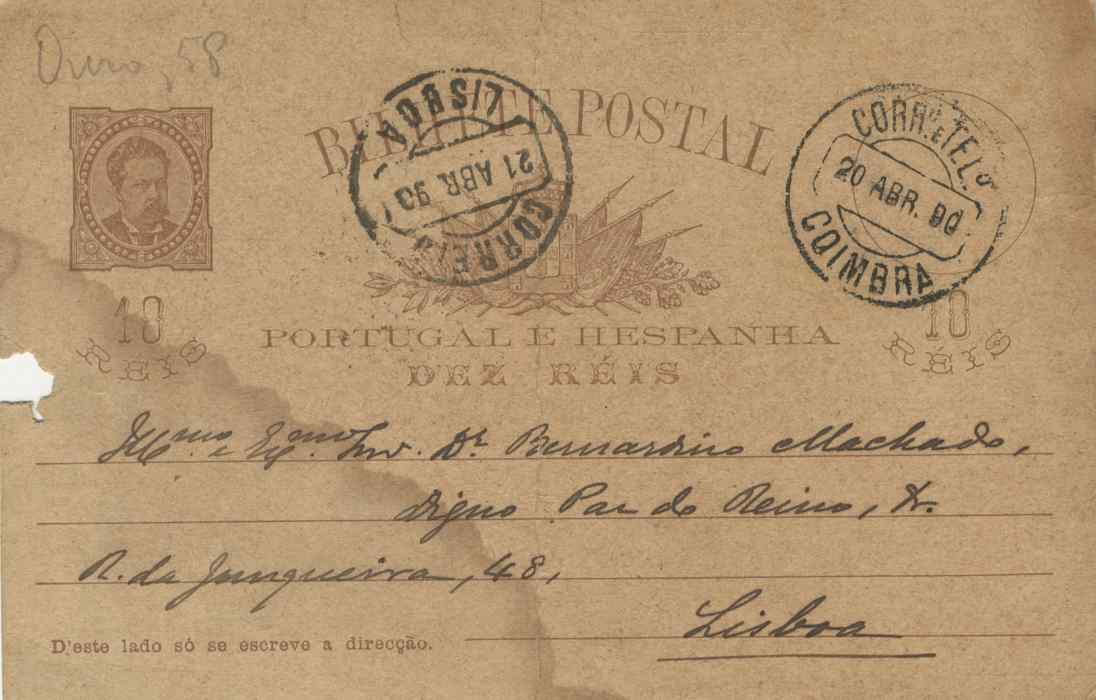 Ouro, 58
BILHETE POSTAL
LISBOA
21 ABR. 90
CORREIO
CORRº E TELº
20 ABR. 90
COIMBRA
10 RÉIS
10 RÉIS
PORTUGAL E HESPANHA
DEZ RÉIS
Illᵐᵒ. e Exᵐᵒ Snr. Dr. Bernardino Machado,
Digno Par do Reino, &.
R. da Junqueira, 48,
Lisboa
D'este lado só se escreve a direcção.